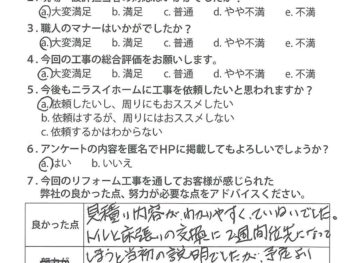 a.大変満足 b.満足 c.普通 d.やや不満 e.不満
3.職人のマナーはいかがでしたか？
a.大変満足 b.満足 c.普通 d.やや不満 e.不満
4.今回の工事の総合評価をお願いします。
a.大変満足 b.満足 c.普通 d.やや不満 e.不満
5.今後もニラスイホームに工事を依頼したいと思われますか？
a.依頼したいし、周りにもおススメしたい
b.依頼はするが、周りにはおススメしない
c.依頼するかはわからない
6.アンケートの内容を匿名でHPに掲載してもよろしいでしょうか？
a.はい b.いいえ
7.今回のリフォーム工事を通してお客様が感じられた
弊社の良かった点、努力が必要な点をアドバイスください。
良かった点
見積り内容がわかりやすく、ていねいでした。
トイレと床張りの交換に2週間位先になって
しまうと当初の説明でしたが、予定より